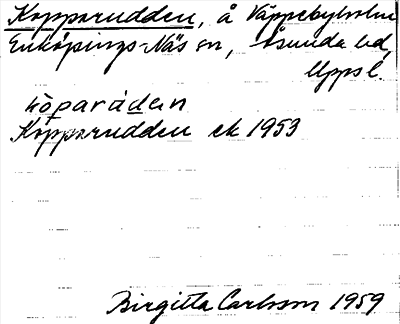 Kopparudden, å Väppebyholm
Enköpings-Näs sn, Åsunda hd,
Uppsl.
kòparúdən
Kopparudden ek 1953
Birgitta Carlsson 1959